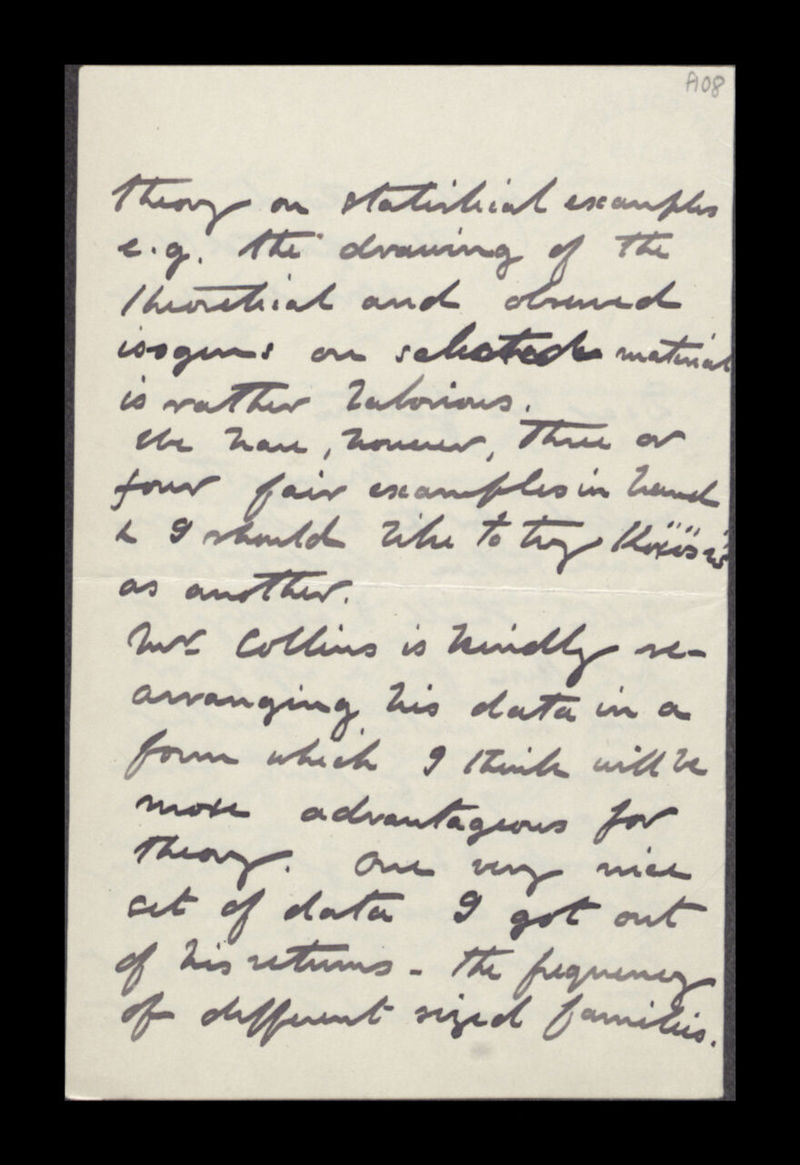 A08
theory on statistical examples
e.g. the drawing of the
theoretical and observed
isogens on selected material
is rather laborious.
We have, however, three or
four fair examples in hand
& I should like to try
as another.
Mr Collins is kindly re-
arranging his data in a
form which I think will be
more advantageous for
theory. One very nice
set of data I got out
of his returns - the frequency
of different sized families.